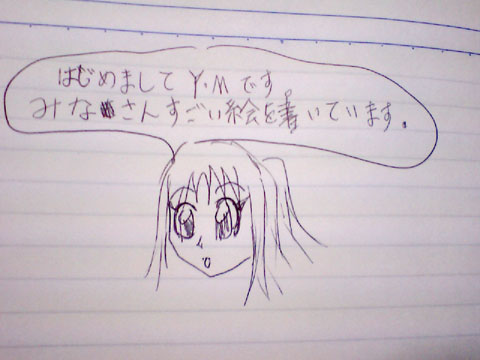 はじめまして Y.Mです。
みなさんすごい絵を書いています。